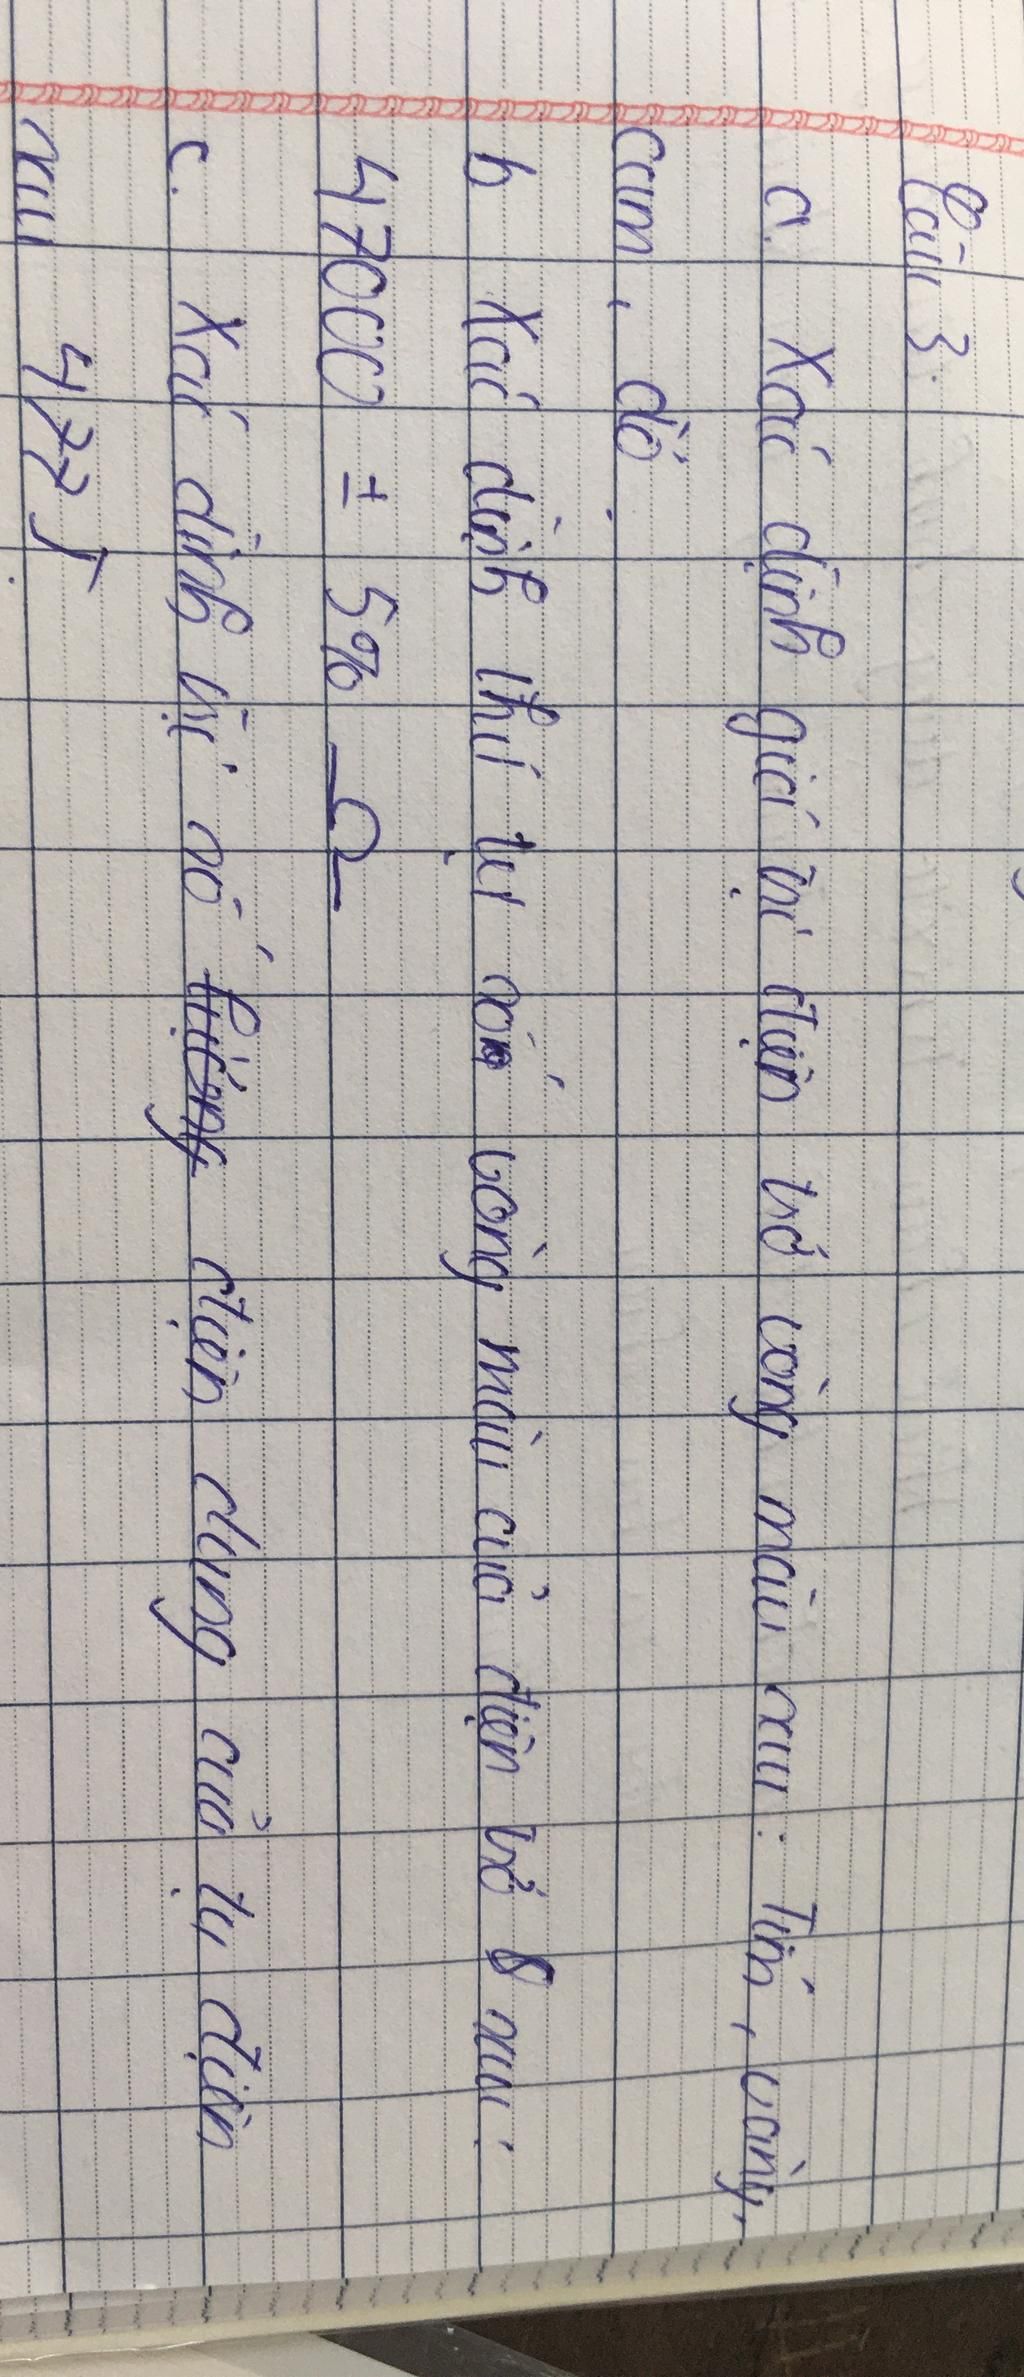 Câu 3.
a. Xác định giá trị điện trở vòng màu sau: Tím, vàng,
cam, đỏ.
b Xác định thứ tự các vòng màu của điện trở sau:
47000 ± 5% Ω
c. Xác định trị số điện dung của tụ điện
sau 477J